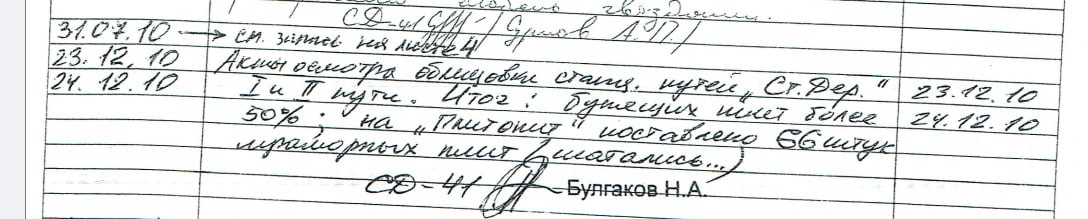 гвоздями.
СД-41 / Сурмов А.П /
31.07.10 → см. запись на листе 4
23.12.10 Акты осмотра облицовки станц. путей „Ст. Дер.” 23.12.10
24.12.10 I и II пути. Итог: бунящих плит более 24.12.10
50%; на „Плитонит” поставлено 66 штук
мраморных плит (шатались...)
СД-41 Булгаков Н.А.